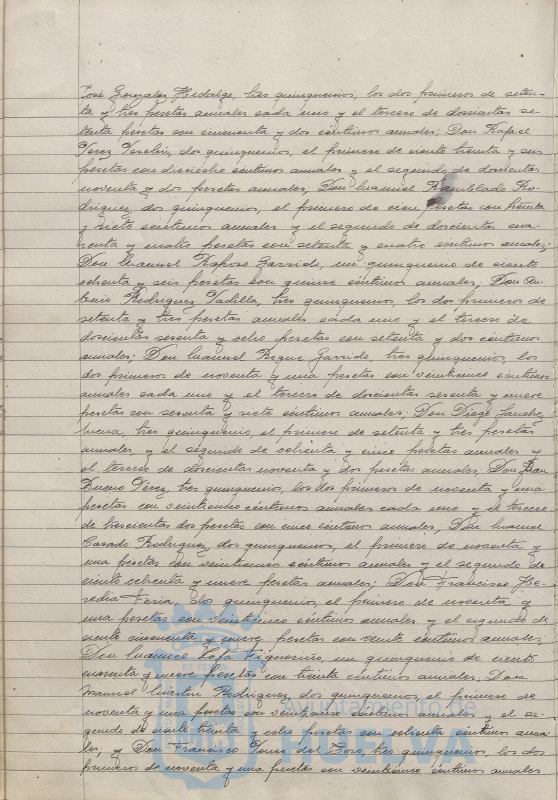 José Gonzalez Hidalgo, tres quinquenios, los dos primeros de seten-
ta y tres pesetas anuales cada uno y el tercero de doscientas se-
tenta pesetas con cincuenta y dos céntimos anuales; Don Rafael
Perez, dos quinquenios, el primero de ciento treinta y seis
pesetas con dieciocho céntimos anuales y el segundo de doscientas
noventa y dos pesetas anuales; Don Manuel Ramblado Ro-
driguez, dos quinquenios, el primero de cien pesetas con treinta
y siete céntimos anuales y el segundo de doscientas cua-
renta y cuatro pesetas con setenta y cuatro céntimos anuales;
Don Manuel Garrido, un quinquenio de ciento
ochenta y seis pesetas con quince céntimos anuales; Don An-
tonio Rodriguez Padilla, tres quinquenios, los dos primeros de
setenta y tres pesetas anuales cada uno y el tercero de
doscientas sesenta y ocho pesetas con setenta y dos céntimos
anuales; Don Manuel Roque Garrido, tres quinquenios, los
dos primeros de noventa y una pesetas con veinticinco céntimos
anuales cada uno y el tercero de doscientas sesenta y nueve
pesetas con sesenta y siete céntimos anuales; Don Diego
tres quinquenio, el primero de setenta y tres pesetas
anuales, y el segundo de ochenta y cinco pesetas anuales y
el tercero de doscientas noventa y dos pesetas anuales; Don Juan
Bueno Pérez, tres quinquenios, los dos primeros de noventa y una
pesetas con veinticinco céntimos anuales cada uno y el tercero
de trescientas dos pesetas con cinco céntimos anuales; Don Manuel
Casado Rodriguez, dos quinquenios, el primero de noventa y
una pesetas con veinticinco céntimos anuales y el segundo de
ciento ochenta y nueve pesetas anuales; Don Francisco He-
redia Feria, dos quinquenios, el primero de noventa y
una pesetas con veinticinco céntimos anuales y el segundo de
ciento cincuenta y nueve pesetas con veinte céntimos anuales;
Don Manuel un quinquenio de ciento
noventa y nueve pesetas con treinta céntimos anuales; Don
Manuel Martin Rodriguez, dos quinquenios, el primero de
noventa y una pesetas con veinticinco céntimos anuales y el se-
gundo de ciento treinta y ocho pesetas con ochenta céntimos anua-
les; y Don Francisco Ponce del Toro, tres quinquenios, los dos
primeros de noventa y una pesetas con veinticinco céntimos anuales
Ayuntamiento de
HUELVA